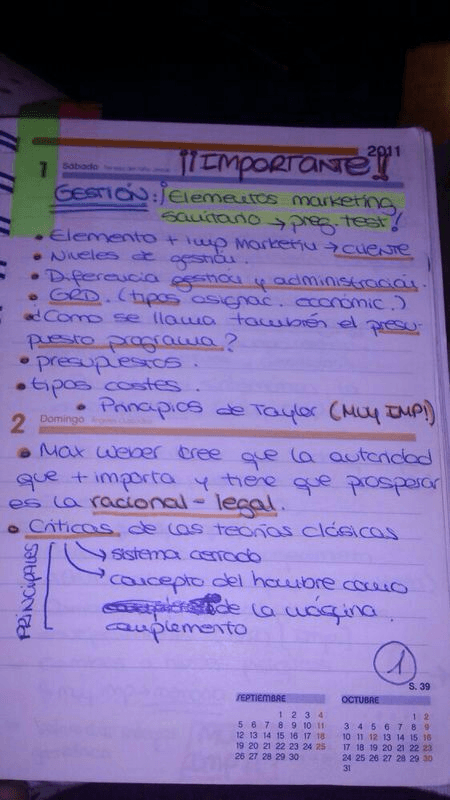 2011
1 Sábado ¡¡IMPORTANTE!!
GESTIÓN: ¡Elementos marketing
sanitario → preg. test!
• Elemento + imp Marketin → CLIENTE
• Niveles de gestión.
• Diferencia gestión y administración.
• GRD. (tipos asignac. económic.)
• ¿Como se llama también el presu-
puesto programa?
• presupuestos.
• tipos costes.
• Principios de Taylor (MUY IMP!)
2 Domingo
• Max Weber cree que la autoridad
que + importa y tiene que prosperar
es la racional-legal.
• Críticas de las teorías clásicas
PRINCIPALES
→ sistema cerrado
→ concepto del hombre como
de la máquina.
complemento
1
S. 39
SEPTIEMBRE OCTUBRE
1 2 3 4 1 2
5 6 7 8 9 10 11 3 4 5 6 7 8 9
12 13 14 15 16 17 18 10 11 12 13 14 15 16
19 20 21 22 23 24 25 17 18 19 20 21 22 23
26 27 28 29 30 24 25 26 27 28 29 30
31